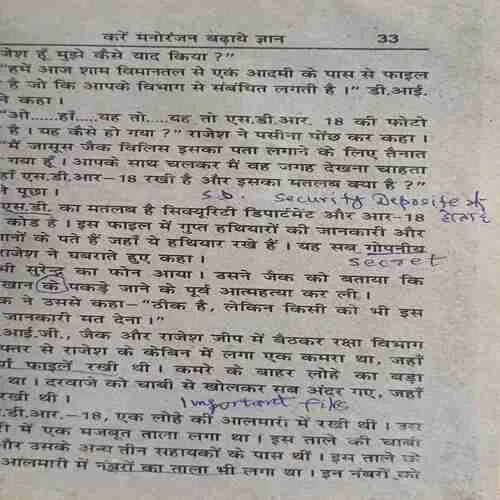 करें मनोरंजन बढ़ाये ज्ञान 33
जेश हूँ मुझे कैसे याद किया ?"
"हमें आज शाम विमानतल से एक आदमी के पास से फाइल
है जो कि आपके विभाग से संबंधित लगती है ।" डी.आई.
ने कहा ।
"ओ......हाँ.....यह तो ....यह तो एस.डी.आर. 18 की फोटो
है । यह कैसे हो गया ?" राजेश ने पसीना पोंछ कर कहा ।
"मैं जासूस जैक विलिस इसका पता लगाने के लिए तैनात
गया हूँ । आपके साथ चलकर मैं वह जगह देखना चाहता
हाँ एस.डी.आर-18 रखी है और इसका मतलब क्या है ?"
ने पूछा ।
S.D. Security Deposite of
एस.डी. का मतलब है सिक्यूरिटी डिपार्टमेंट और आर-18
कोड है । इस फाइल में गुप्त हथियारों की जानकारी और
पानों के पते हैं जहाँ ये हथियार रखे हैं । यह सब गोपनीय
राजेश ने घबराते हुए कहा ।
secret
भी सुरेन्द्र का फोन आया । उसने जैक को बताया कि
खान के पकड़े जाने के पूर्व आत्महत्या कर ली ।
क ने उससे कहा-"ठीक है, लेकिन किसी को भी इस
जानकारी मत देना ।"
आई.जी., जैक और राजेश जीप में बैठकर रक्षा विभाग
फ्तर से राजेश के केबिन में लगा एक कमरा था, जहाँ
र्ण फाइलें रखी थी । कमरे के बाहर लोहे का बड़ा
था । दरवाजे को चाबी से खोलकर सब अंदर गए, जहाँ
रखी थी ।
Important file
.डी.आर.-18, एक लोहे की आलमारी में रखी थी । उस
री में एक मजबूत ताला लगा था । इस ताले की चाबी
और उसके अन्य तीन सहायकों के पास थीं । इस ताले के
आलमारी में नंबरों का ताला भी लगा था । इन नंबरों को